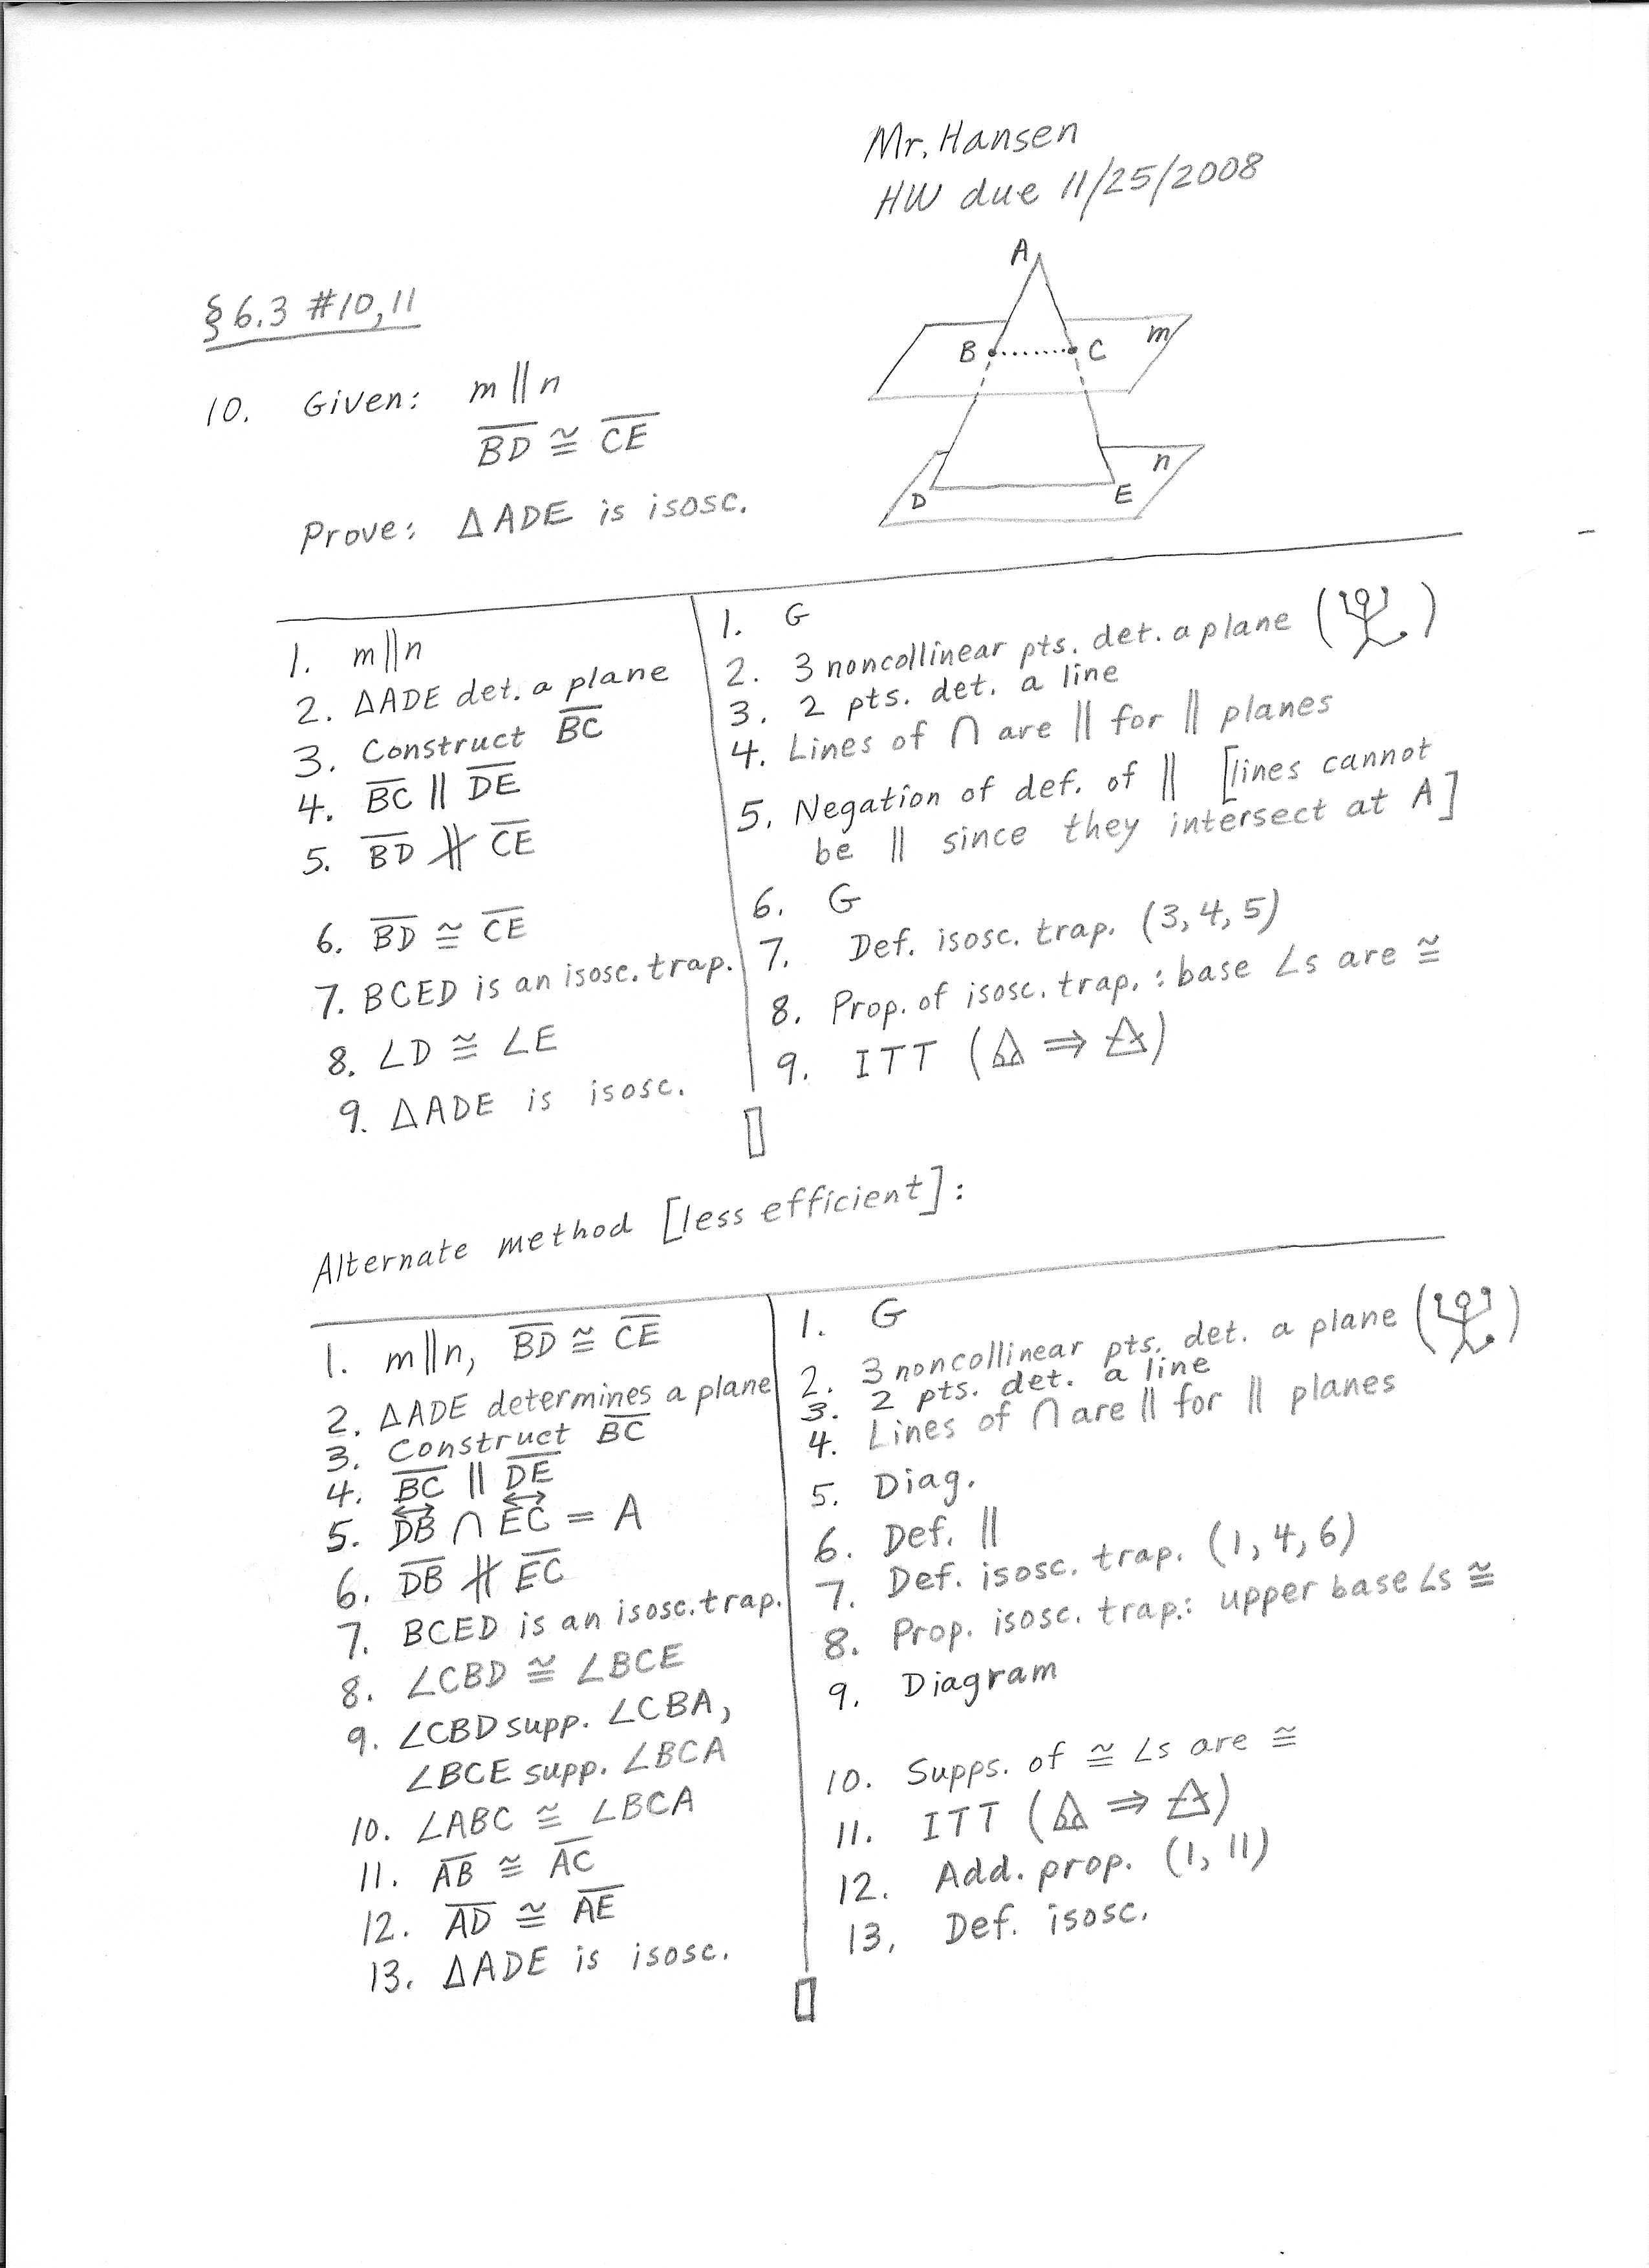 Mr. Hansen
HW due 11/25/2008
§ 6.3 #10, 11
A
B
C
m
D
E
n
10. Given: m ∥ n
B͞D ≅ C͞E
Prove: △ADE is isosc.
1. m∥n
1. G
2. △ADE det. a plane
2. 3 noncollinear pts. det. a plane ( )
3. Construct B͞C
3. 2 pts. det. a line
4. B͞C ∥ D͞E
4. Lines of ∩ are ∥ for ∥ planes
5. B͞D ∦ C͞E
5. Negation of def. of ∥ [lines cannot
be ∥ since they intersect at A]
6. B͞D ≅ C͞E
6. G
7. BCED is an isosc. trap.
7. Def. isosc. trap. (3, 4, 5)
8. ∠D ≅ ∠E
8. Prop. of isosc. trap. : base ∠s are ≅
9. △ADE is isosc.
9. ITT (△ ⇒ △)
Alternate method [less efficient]:
1. m∥n, B͞D ≅ C͞E
1. G
2. △ADE determines a plane
2. 3 noncollinear pts. det. a plane ( )
3. Construct B͞C
3. 2 pts. det. a line
4. B͞C ∥ D͞E
4. Lines of ∩ are ∥ for ∥ planes
5. D⃡B ∩ E⃡C = A
5. Diag.
6. D͞B ∦ E͞C
6. Def. ∥
7. BCED is an isosc. trap.
7. Def. isosc. trap. (1, 4, 6)
8. ∠CBD ≅ ∠BCE
8. Prop. isosc. trap.: upper base ∠s ≅
9. ∠CBD supp. ∠CBA,
∠BCE supp. ∠BCA
9. Diagram
10. ∠ABC ≅ ∠BCA
10. Supps. of ≅ ∠s are ≅
11. A͞B ≅ A͞C
11. ITT (△ ⇒ △)
12. A͞D ≅ A͞E
12. Add. prop. (1, 11)
13. △ADE is isosc.
13. Def. isosc.